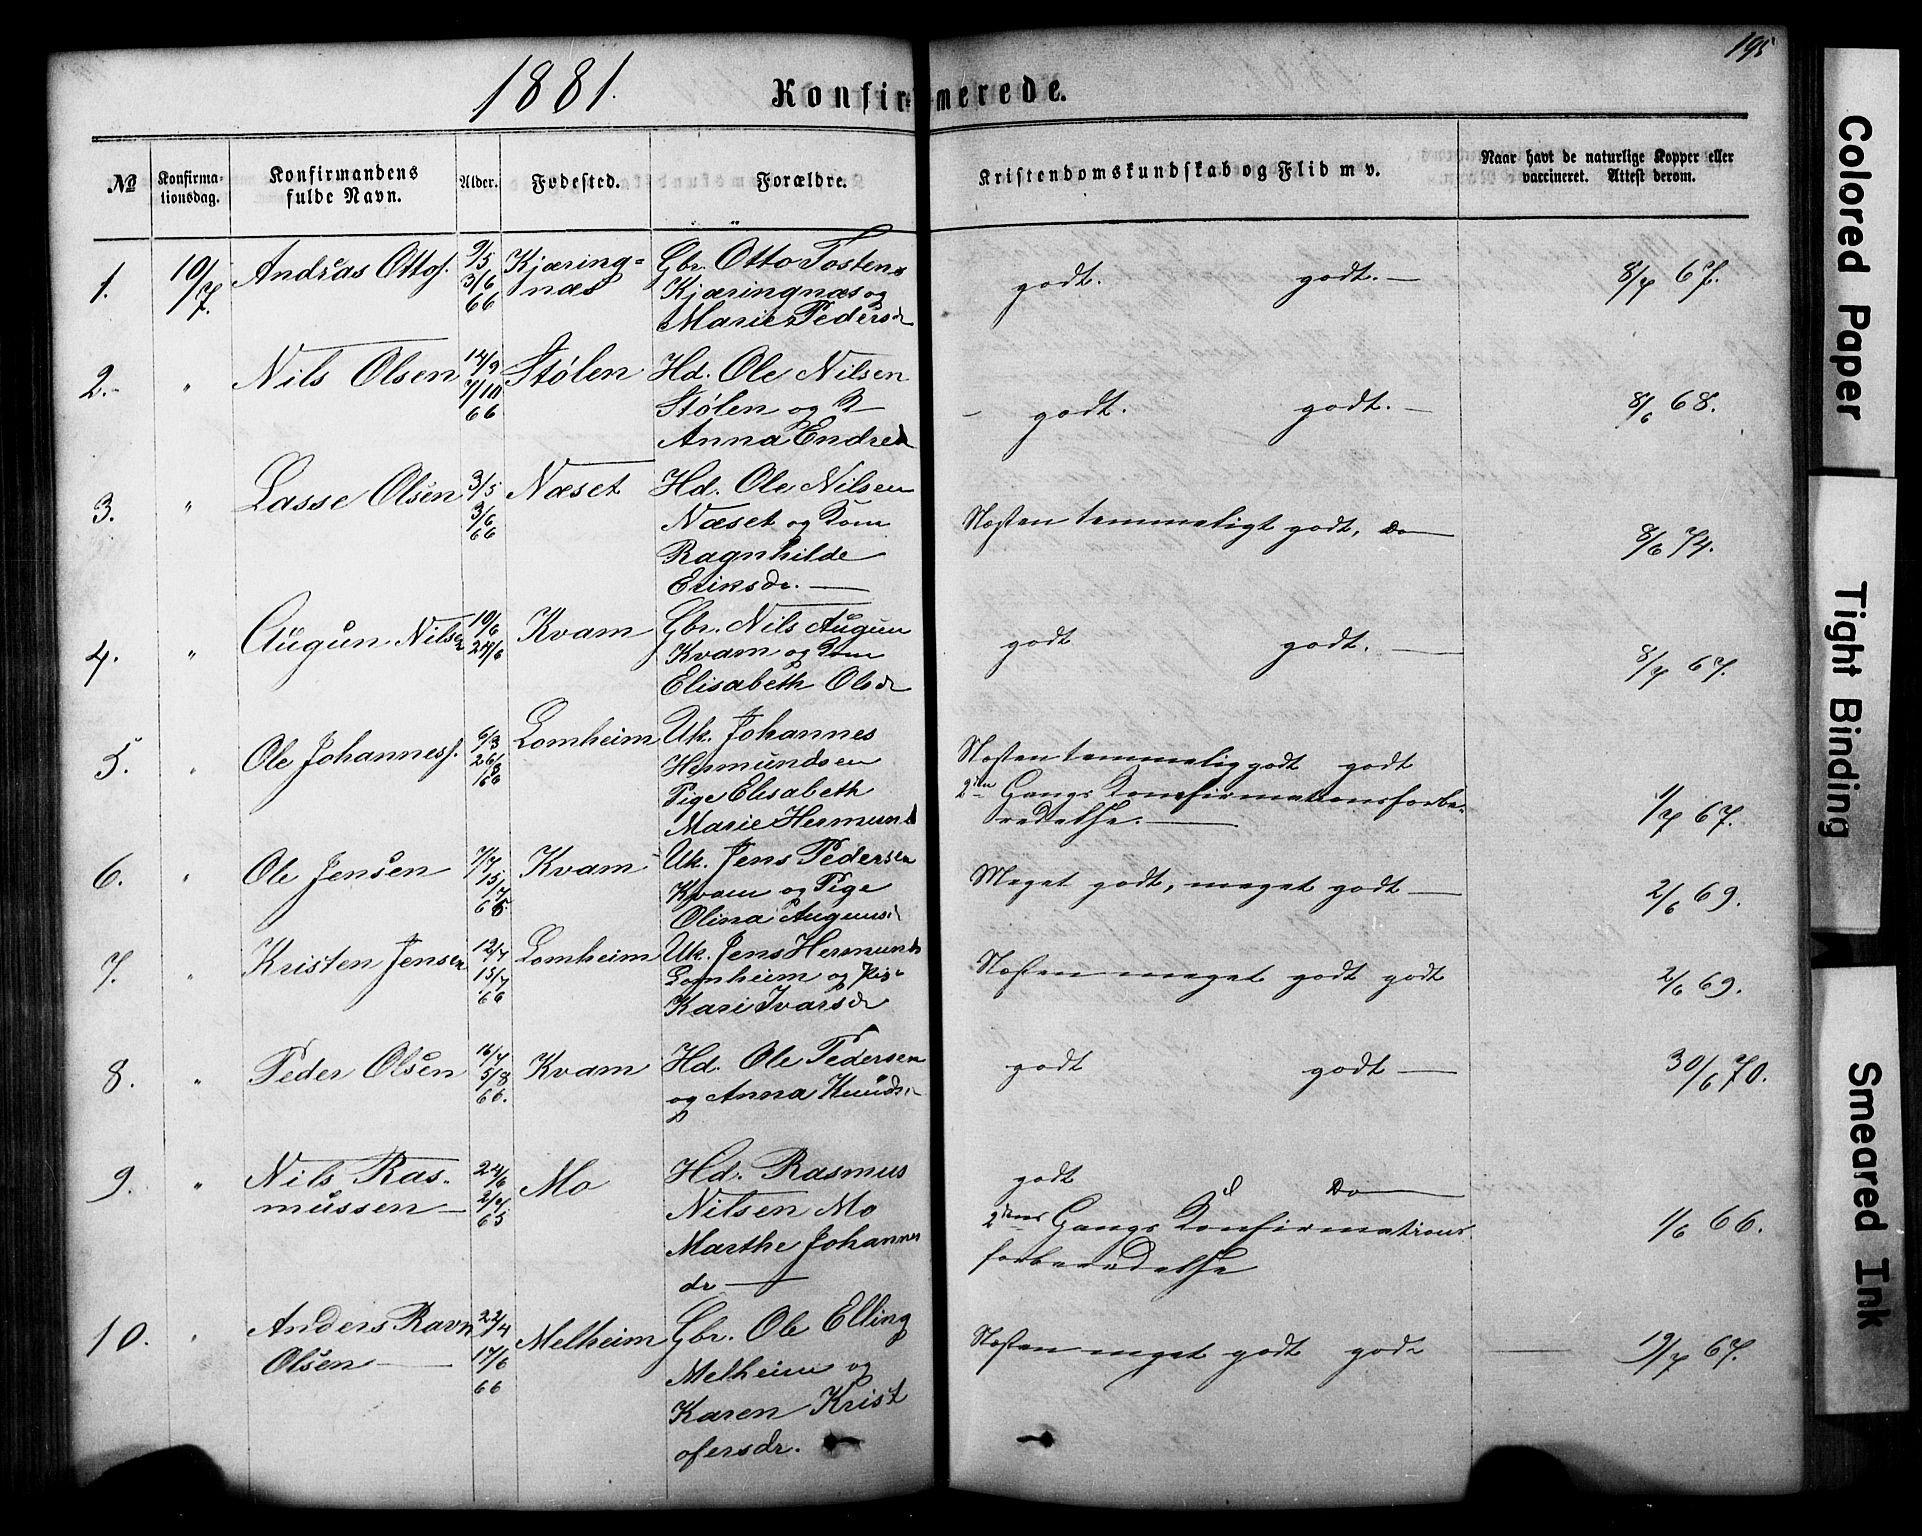 195
1881.
Konfirmerede.
No
Konfirma-
tionsdag.
Konfirmandens
fulde Navn.
Alder.
Fødested.
Forældre.
Kristendomskundskab og Flid m v.
Naar havt de naturlige Kopper eller
vaccineret. Attest derom.
1.
10/7.
Andras Ottos.
9/5
3/6
66
Kjæring=
næs
Gbr. Otto Tostens
Kjæringnæs og
Marie Pedersd
godt. godt. —
8/7 67.
2.-
"
Nils Olsen
14/9
7/10
66
Stølen
Hd. Ole Nilsen
Stølen og K
Anna Endred
- godt. godt. —
8/6 68.
3.
"
Lasse Olsen
3/5
3/6
66
Næset
Hd. Ole Nilsen
Næset og Kone
Ragnhilde
Erinsdr. —
Næsten temmeligt godt, Do —
8/6 74.
4.
"
Augun Nilsen
10/6
24/6
Kvam
Gbr. Nils Augun
Kvam og Kone
Elisabeth Olsdr
godt godt. —
8/7 67.
5.
"
Ole Johanness.
6/3
26/3
66
Lomheim
Uk. Johannes
Hermundsen
Pige Elisabeth
Marie Hermund
Næsten temmelig godt godt
2den Gangs Konfirmationsforbe-
redelse. —
1/7 67.
6.
"
Ole Jensen
7/7
15/7
65.
Kvam
Uk. Jens Pedersen
Kvam og Pige
Olina Augunsd
Meget godt, meget godt —
2/6 69.
7.
"
Kristen Jensen
12/7
15/7
66
Lomheim
Uk. Jens Hermunds
Lomheim og Pige
Kari Ivarsdr
Næsten meget godt godt
2/6 69.
8.
"
Peder Olsen
16/7
5/8
66.
Kvam
Hd. Ole Pedersen
og Anna Knudsd
godt godt —
30/6 70.
9.
"
Nils Ras-
mussen —
24/6
2/7
65
Mo
Hd. Rasmus
Nilsen Mo
Marthe Johannes
dr —
godt Do —
2dens Gangs Konfirmations
forberedelse
1/6 66.
10.
"
Anders Ravn
Olsen —
22/4
17/6
66
Melheim
Gbr. Ole Elling
Melheim og
Karen Krist
ofersdr.
Næsten meget godt godt —
19/7 67.
Colored Paper
Tight Binding
Smeared Ink